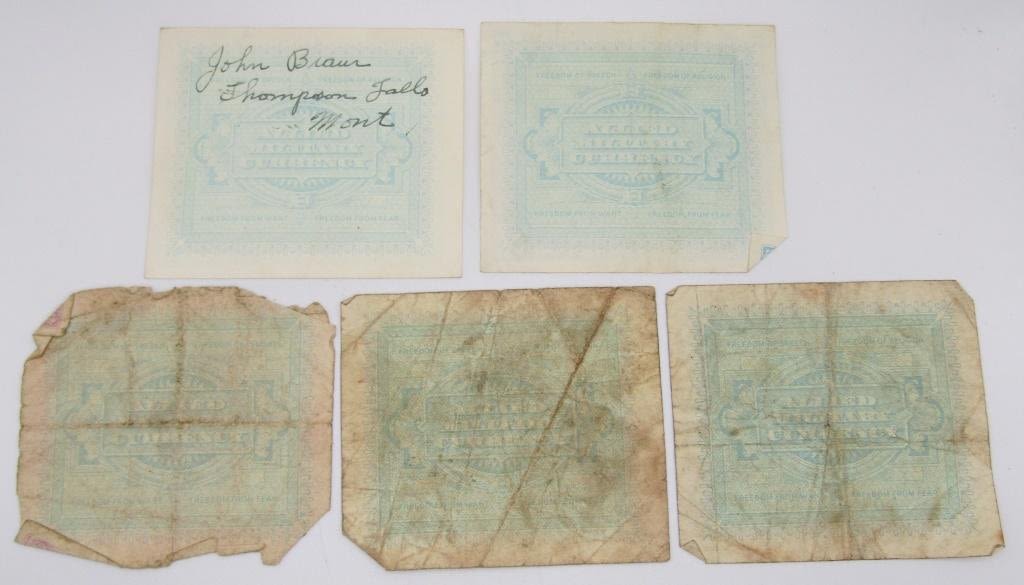 John Braun
Thompson Falls
Mont
FREEDOM OF SPEECH FREEDOM OF RELIGION
ALLIED
MILITARY
CURRENCY
FREEDOM FROM WANT FREEDOM FROM FEAR
FREEDOM OF SPEECH FREEDOM OF RELIGION
ALLIED
MILITARY
CURRENCY
FREEDOM FROM WANT FREEDOM FROM FEAR
FREEDOM OF SPEECH FREEDOM OF RELIGION
ALLIED
CURRENCY
FREEDOM FROM WANT FREEDOM FROM FEAR
FREEDOM OF SPEECH
ALLIED
MILITARY
CURRENCY
FREEDOM FROM WANT
FREEDOM OF SPEECH FREEDOM OF RELIGION
ALLIED
MILITARY
CURRENCY
FREEDOM FROM WANT FREEDOM FROM FEAR